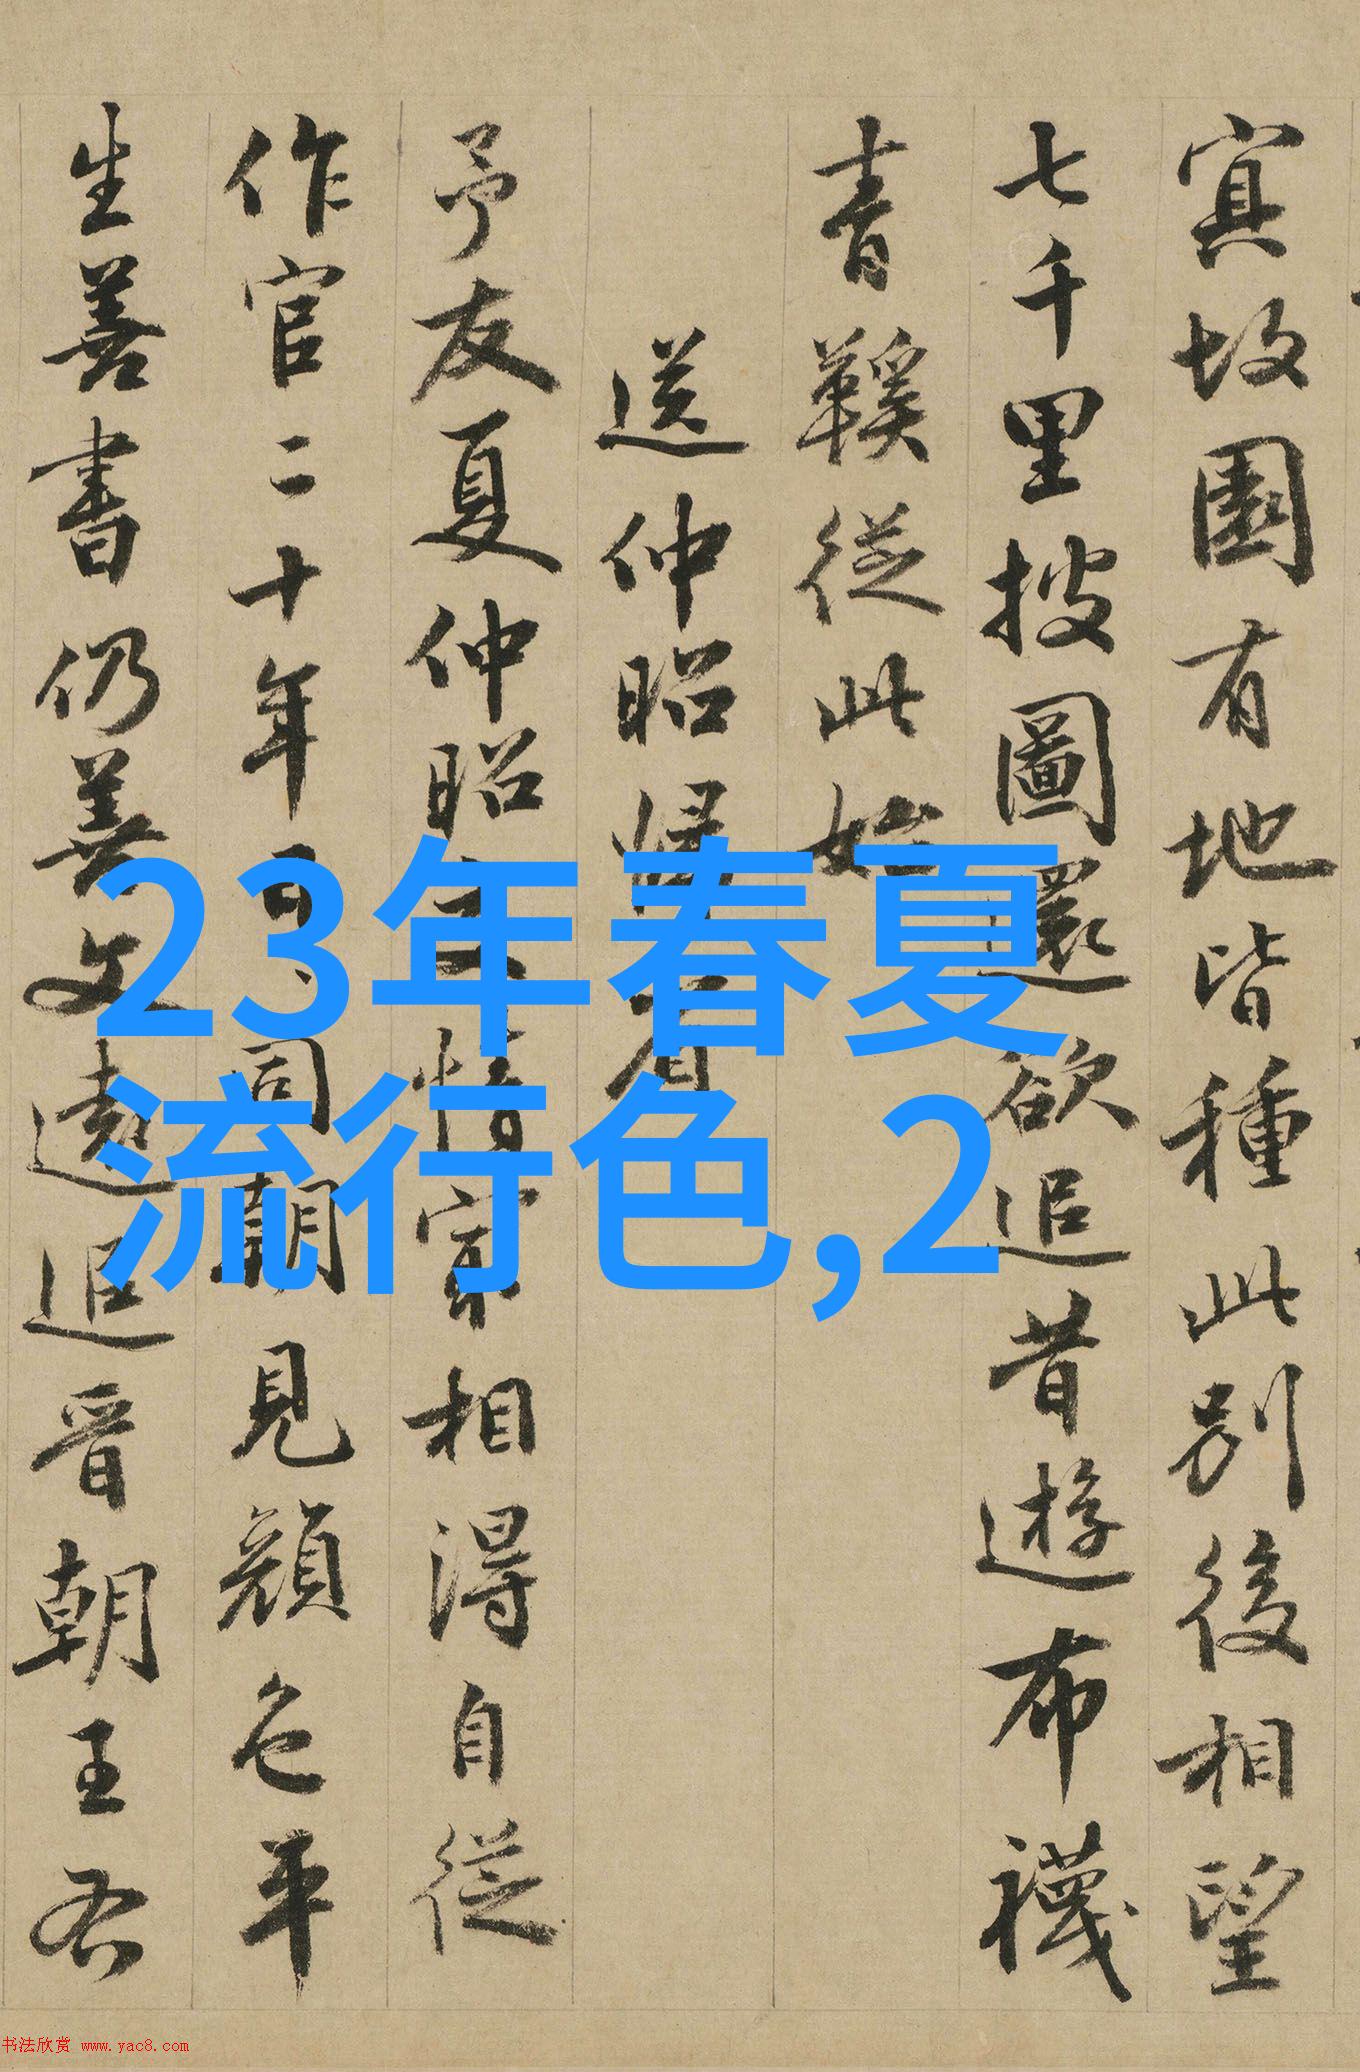 故園有地皆種此別後相望
七千里披圖還欲追昔遊布襪
青鞵從此始
送仲昭歸省
予友夏仲昭交情冣相得自從
作官二十年日日同朝見顏色平
生善書仍善文遠追晉朝王右
23年春夏
流行色,2
书法欣赏 www.yac8.com